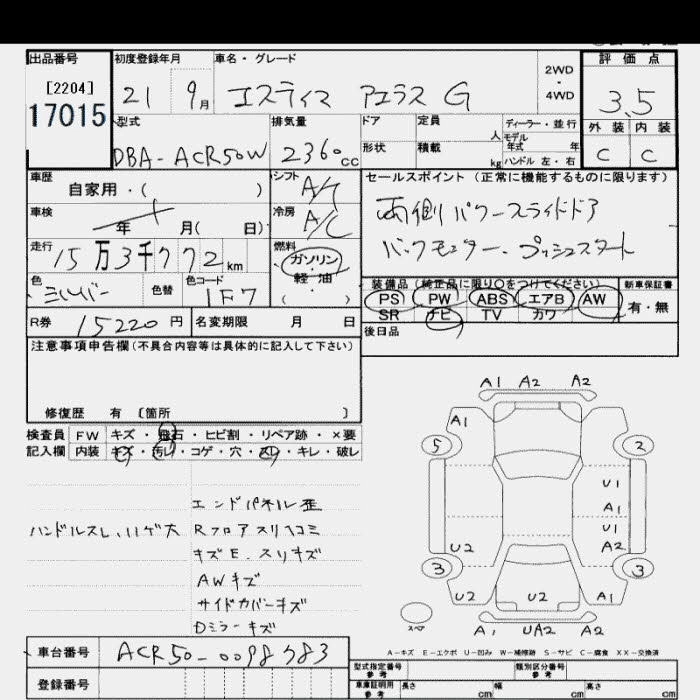 出品番号
[2204]
17015
初度登録年月
21 9月
車名・グレード
エスティマ アエラス G
2WD
・
4WD
評価点
3.5
外装 内装
C C
型式
DBA-ACR50W
排気量
2360cc
ドア
定員 人
形状
積載 kg
ディーラー・並行
モデル年式 年
ハンドル 左・右
車歴
自家用・( )
シフト
A/T
車検
年 月( 日)
冷房
A/C
セールスポイント (正常に機能するものに限ります)
両側パワースライドドア
バックモニター・プッシュスタート
走行
15万3千772km
燃料
ガソリン
軽・油
( )
色
シルバー
色替
色コード
1F7
装備品(純正品に限り○をつけてください)
新車保証書
PS PW ABS エアB AW
SR ナビ TV カワ
有・無
R券 15220円
名変期限 月 日
後日品
注意事項申告欄(不具合内容等は具体的に記入して下さい)
修復歴 有 〔箇所 〕
検査員記入欄
FW キズ・飛石・ヒビ割・リペア跡・×要
内装 キズ・汚レ・コゲ・穴・スレ・キレ・破レ
エンドパネル歪
ハンドルスレ、ハゲ大
Rフロアスリヘコミ
キズE.スリキズ
AWキズ
サイドカバーキズ
Dミラーキズ
A1 A2 A2
A1
5 2
U1
A1
U1
U2 A2
3 3
U2 U2 A1
スペア
A1 UA2 A2
A-キズ E-エクボ U-凹み W-補修跡 S-サビ C-腐食 XX-交換済
車台番号
ACR50-0098783
登録番号
型式指定番号
参考
類別区分番号
参考
車庫証明用
参考
長さ cm
幅 cm
高さ cm